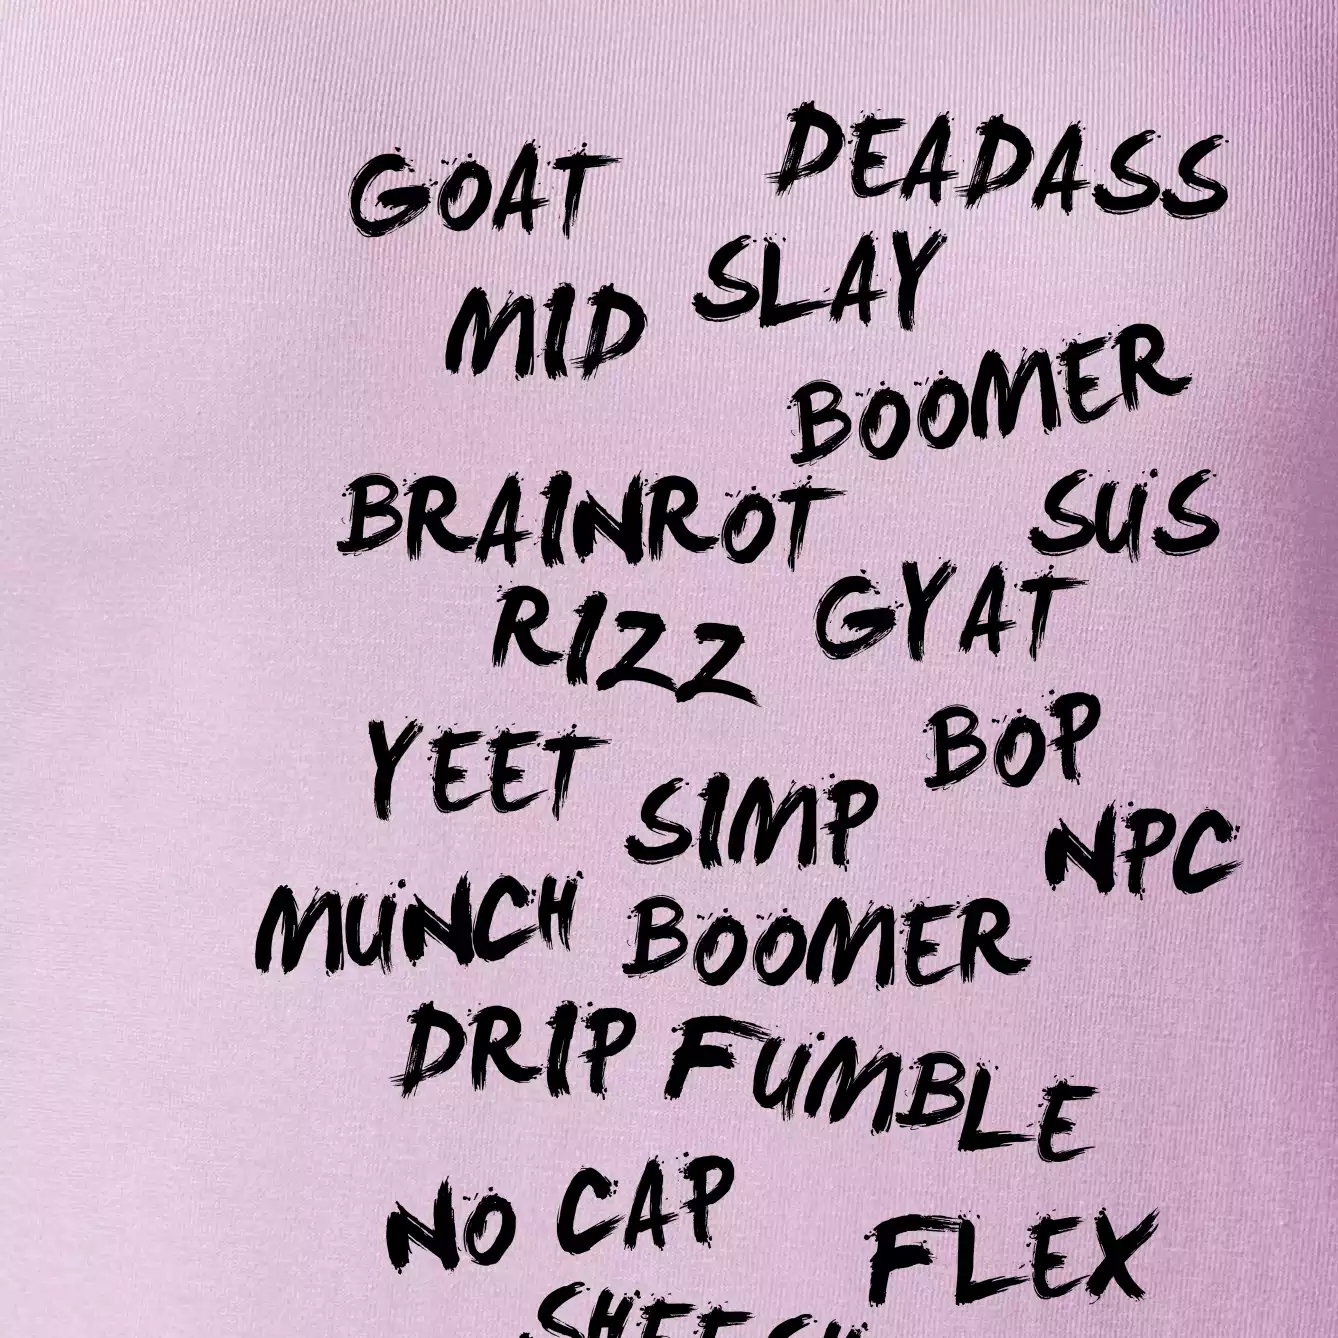 GOAT
DEADASS
MID
SLAY
BOOMER
BRAINROT
SUS
RIZZ
GYAT
YEET
BOP
SIMP
NPC
MUNCH
BOOMER
DRIP
FUMBLE
NO CAP
FLEX
SHEESH